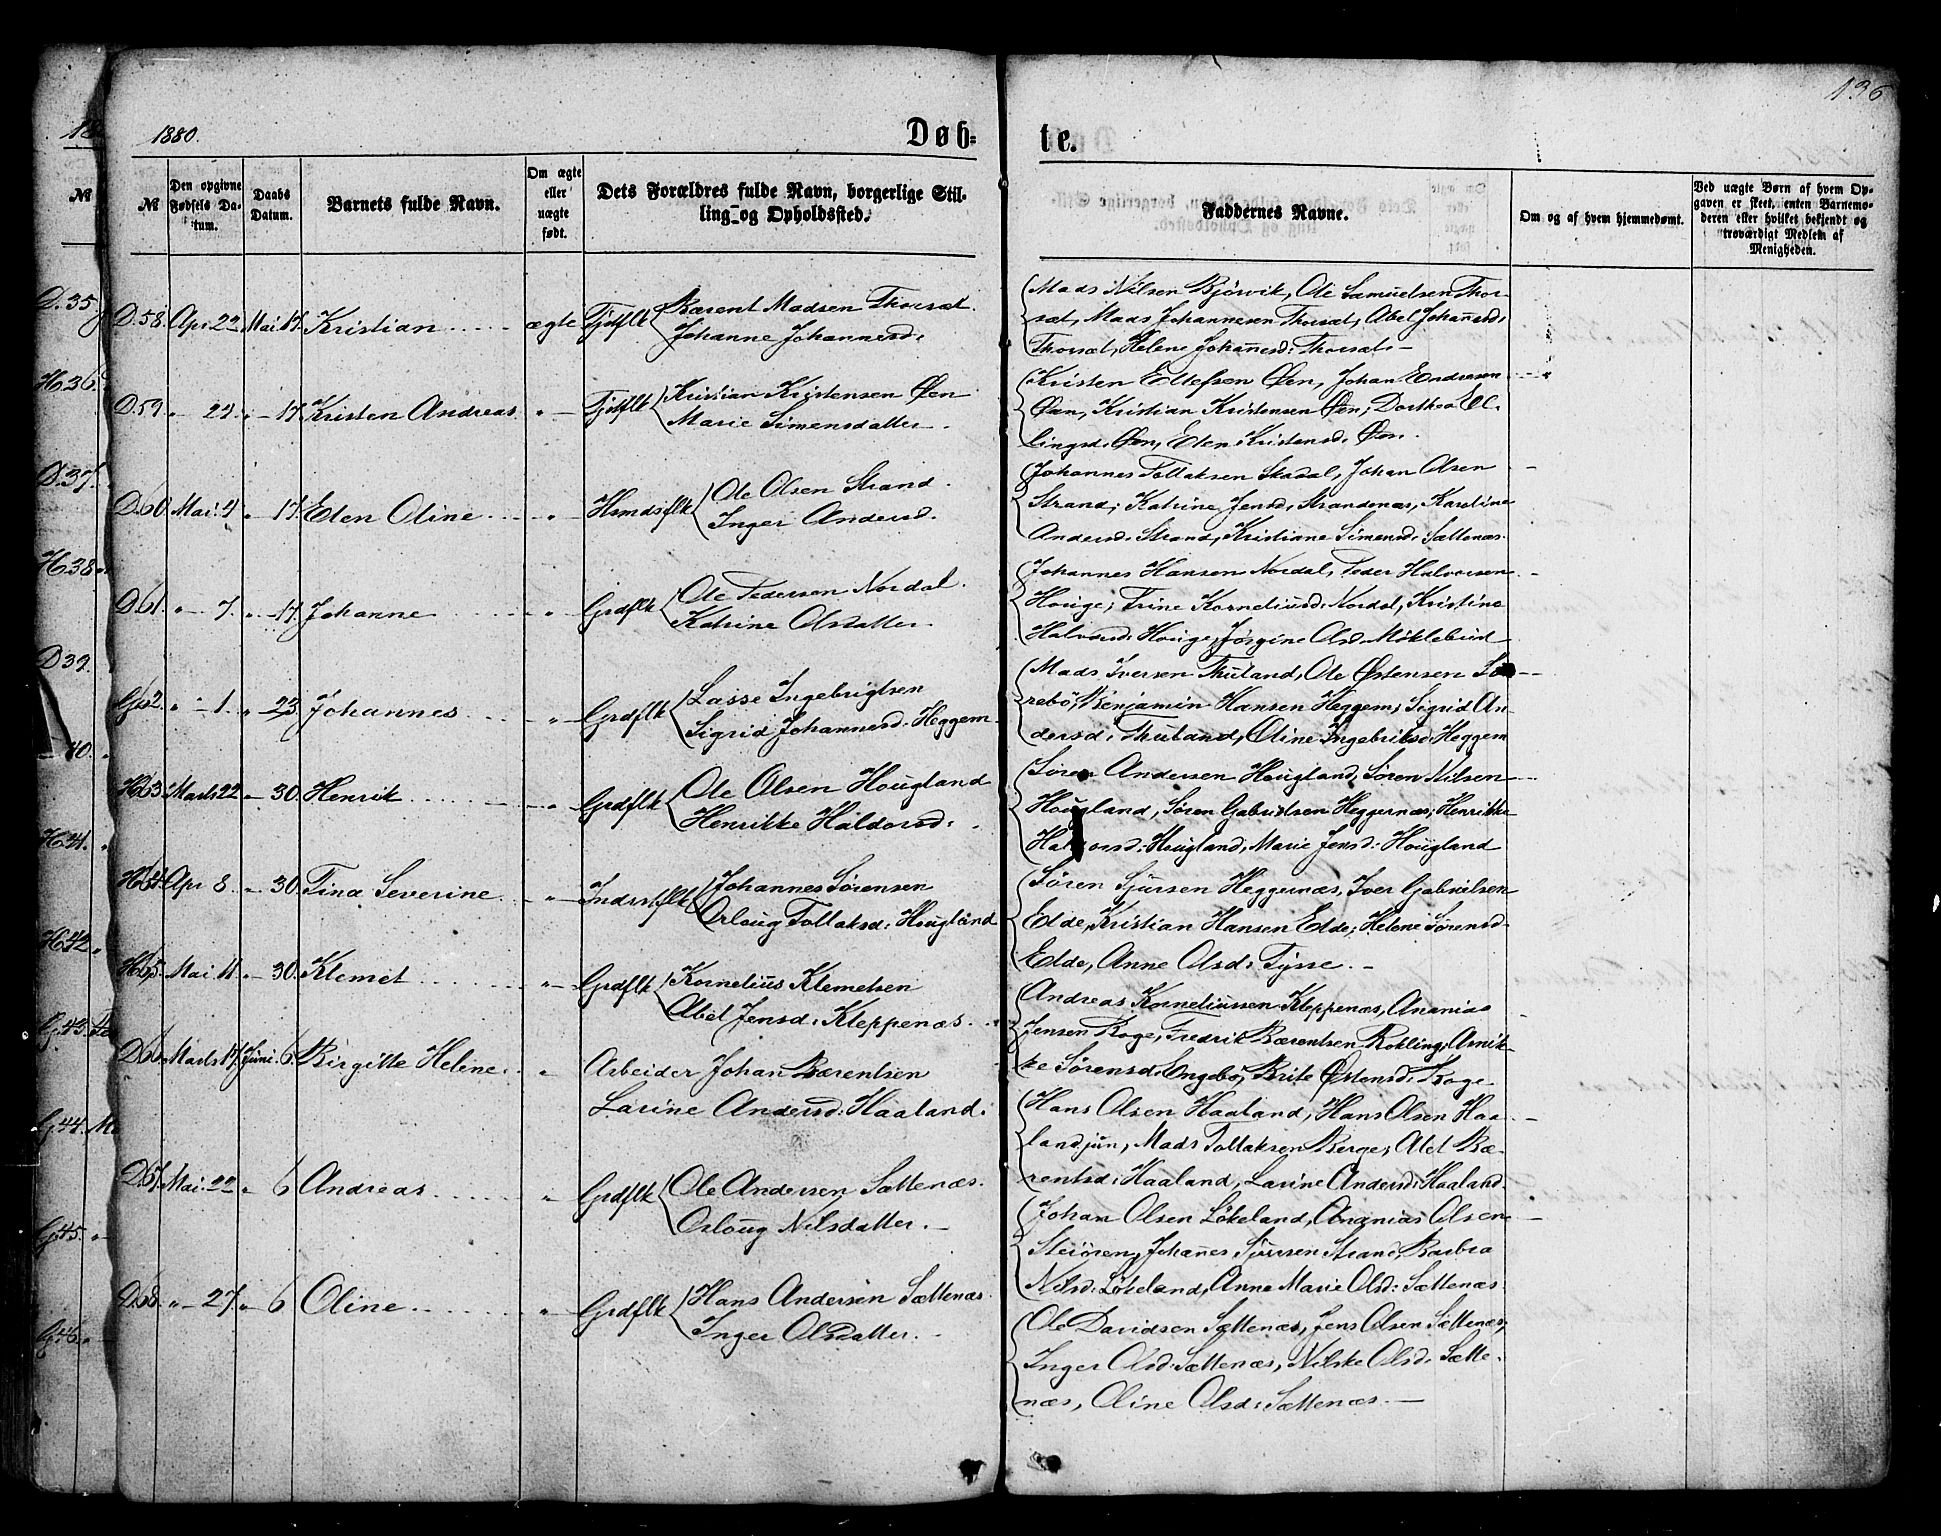 136
1880.
Døb-
te.
№
Den opgivne Fødsels Datum.
Daabs Datum.
Barnets fulde Navn.
Om ægte eller uægte født.
Dets Forældres fulde Navn, borgerlige Stilling og Opholdsted.
Faddernes Navne.
Om og af hvem hjemmedøbt.
Ved uægte Børn af hvem Opgaven er skeet, enten Barnemoderen eller hvilket bekjendt og troværdigt Medlem af Menigheden.
№
D.35
H.36
D.37
H.38
D.39
40.
H.41.
H.42
G.43.
G.44.
G.45.
G.46.
D.58. Apr. 22 Mai. 17. Kristian ægte Tjstflk Bærent Madsen Thorsæt
Johanne Johannesd:
Mads Nilsen Bjørvik, Ole Samuelsen Thor-
sæt, Mads Johannesen Thorsæt, Abel Johannesd:
Thorsæt, Helene Johanesd: Thorsæt –
D.59 " – 22. " – 17. Kristen Andreas " Tjstflk Kristian Kristensen Øen
Marie Simensdatter.
Kristen Ellefsen Øen, Johan Endresen
Øen, Kristian Kristensen Øen, Dorthea El-
lingsd: Øen, Elen Kristensd: Øen.
D.60. Mai. 4 " – 17. Elen Oline " Hsmdsflk Ole Olsen Strand.
Inger Andersd.
Johannes Tollaksen Skadal, Johan Olsen
Strand, Katrine Jensd: Strandenæs, Karoline
Andersd: Strand, Kristiane Simensd: Sættenæs.
D.61. " – 7. " – 17. Johanne " Grdflk Ole Pedersen Nordal.
Katrine Olsdatter.
Johannes Hansen Nordal, Peder Halvorsen
Houge, Trine Korneliusd: Nordal, Kristine
Halvorsd: Houge, Jørgine Olsd: Møklebust
G.62. " – 1. " – 23. Johannes " Grdflk Lasse Ingebrigtsen
Sigrid Johannesd: Heggem
Mads Iversen Thuland, Ole Østensen Sø-
rebø, Benjamin Hansen Heggem, Sigrid An-
dersd: Thuland, Oline Ingebritsd: Heggem
H.63. Marts. 22 " – 30. Henrik " Grdflk Ole Olsen Hougland
Henrikke Haldorsd:
Søren Andersen Hougland, Søren Nilsen
Hougland, Søren Gabrielsen Heggernæs, Henrikke
Hougland, Marie Jensd: Hougland
H.64. Apr 8. " – 30. Tina Severine " Johannes Sørensen
Orloug Tollaksd: Hougland
Søren Sjursen Heggernæs, Iver Gabrielsen
Elde, Kristian Hansen Elde, Helene Sørensd
Elde, Anne Olsd: Tysse. –
H.65. Mai. 11. " – 30. Klemet " Grdflk Kornelius Klemetsen
Abel Jensd: Kleppenæs.
Andreas Korneliussen Kleppenæs, Ananias
Jensen Boge, Fredrik Bærentsen Rokling, Arnik-
ke Sørensd: Engebø, Brite Østensd: Boge
D.66. Marts. 17. Juni. 6. Birgitte Helene. " Arbeider Johan Bærentsen
Larine Andersd: Haaland.
Hans Olsen Haaland, Hans Olsen Haa-
land jun, Mads Tollaksen Berge, Abel Bæ-
rentsd: Haaland, Larine Andersd: Haaland.
D.67. Mai. 22 " 6 Andreas " Grdflk Ole Andersen Sættenæs.
Orloug Nilsdatter. –
Johan Olsen Løkeland, Ananias Olsen
Steiøren, Johanes Sjursen Strand, Barbra
Nilsd: Løkeland, Anne Marie Olsd: Sættenæs.
D.68. " – 27. " 6 Oline " Grdflk Hans Andersen Sættenæs.
Inger Olsdatter. –
Ole Davidsen Sættenæs, Jens Olsen Sættenæs,
Inger Olsd: Sættenæs, Nilske Olsd: Sætte-
næs, Oline Olsd: Sættenæs. –